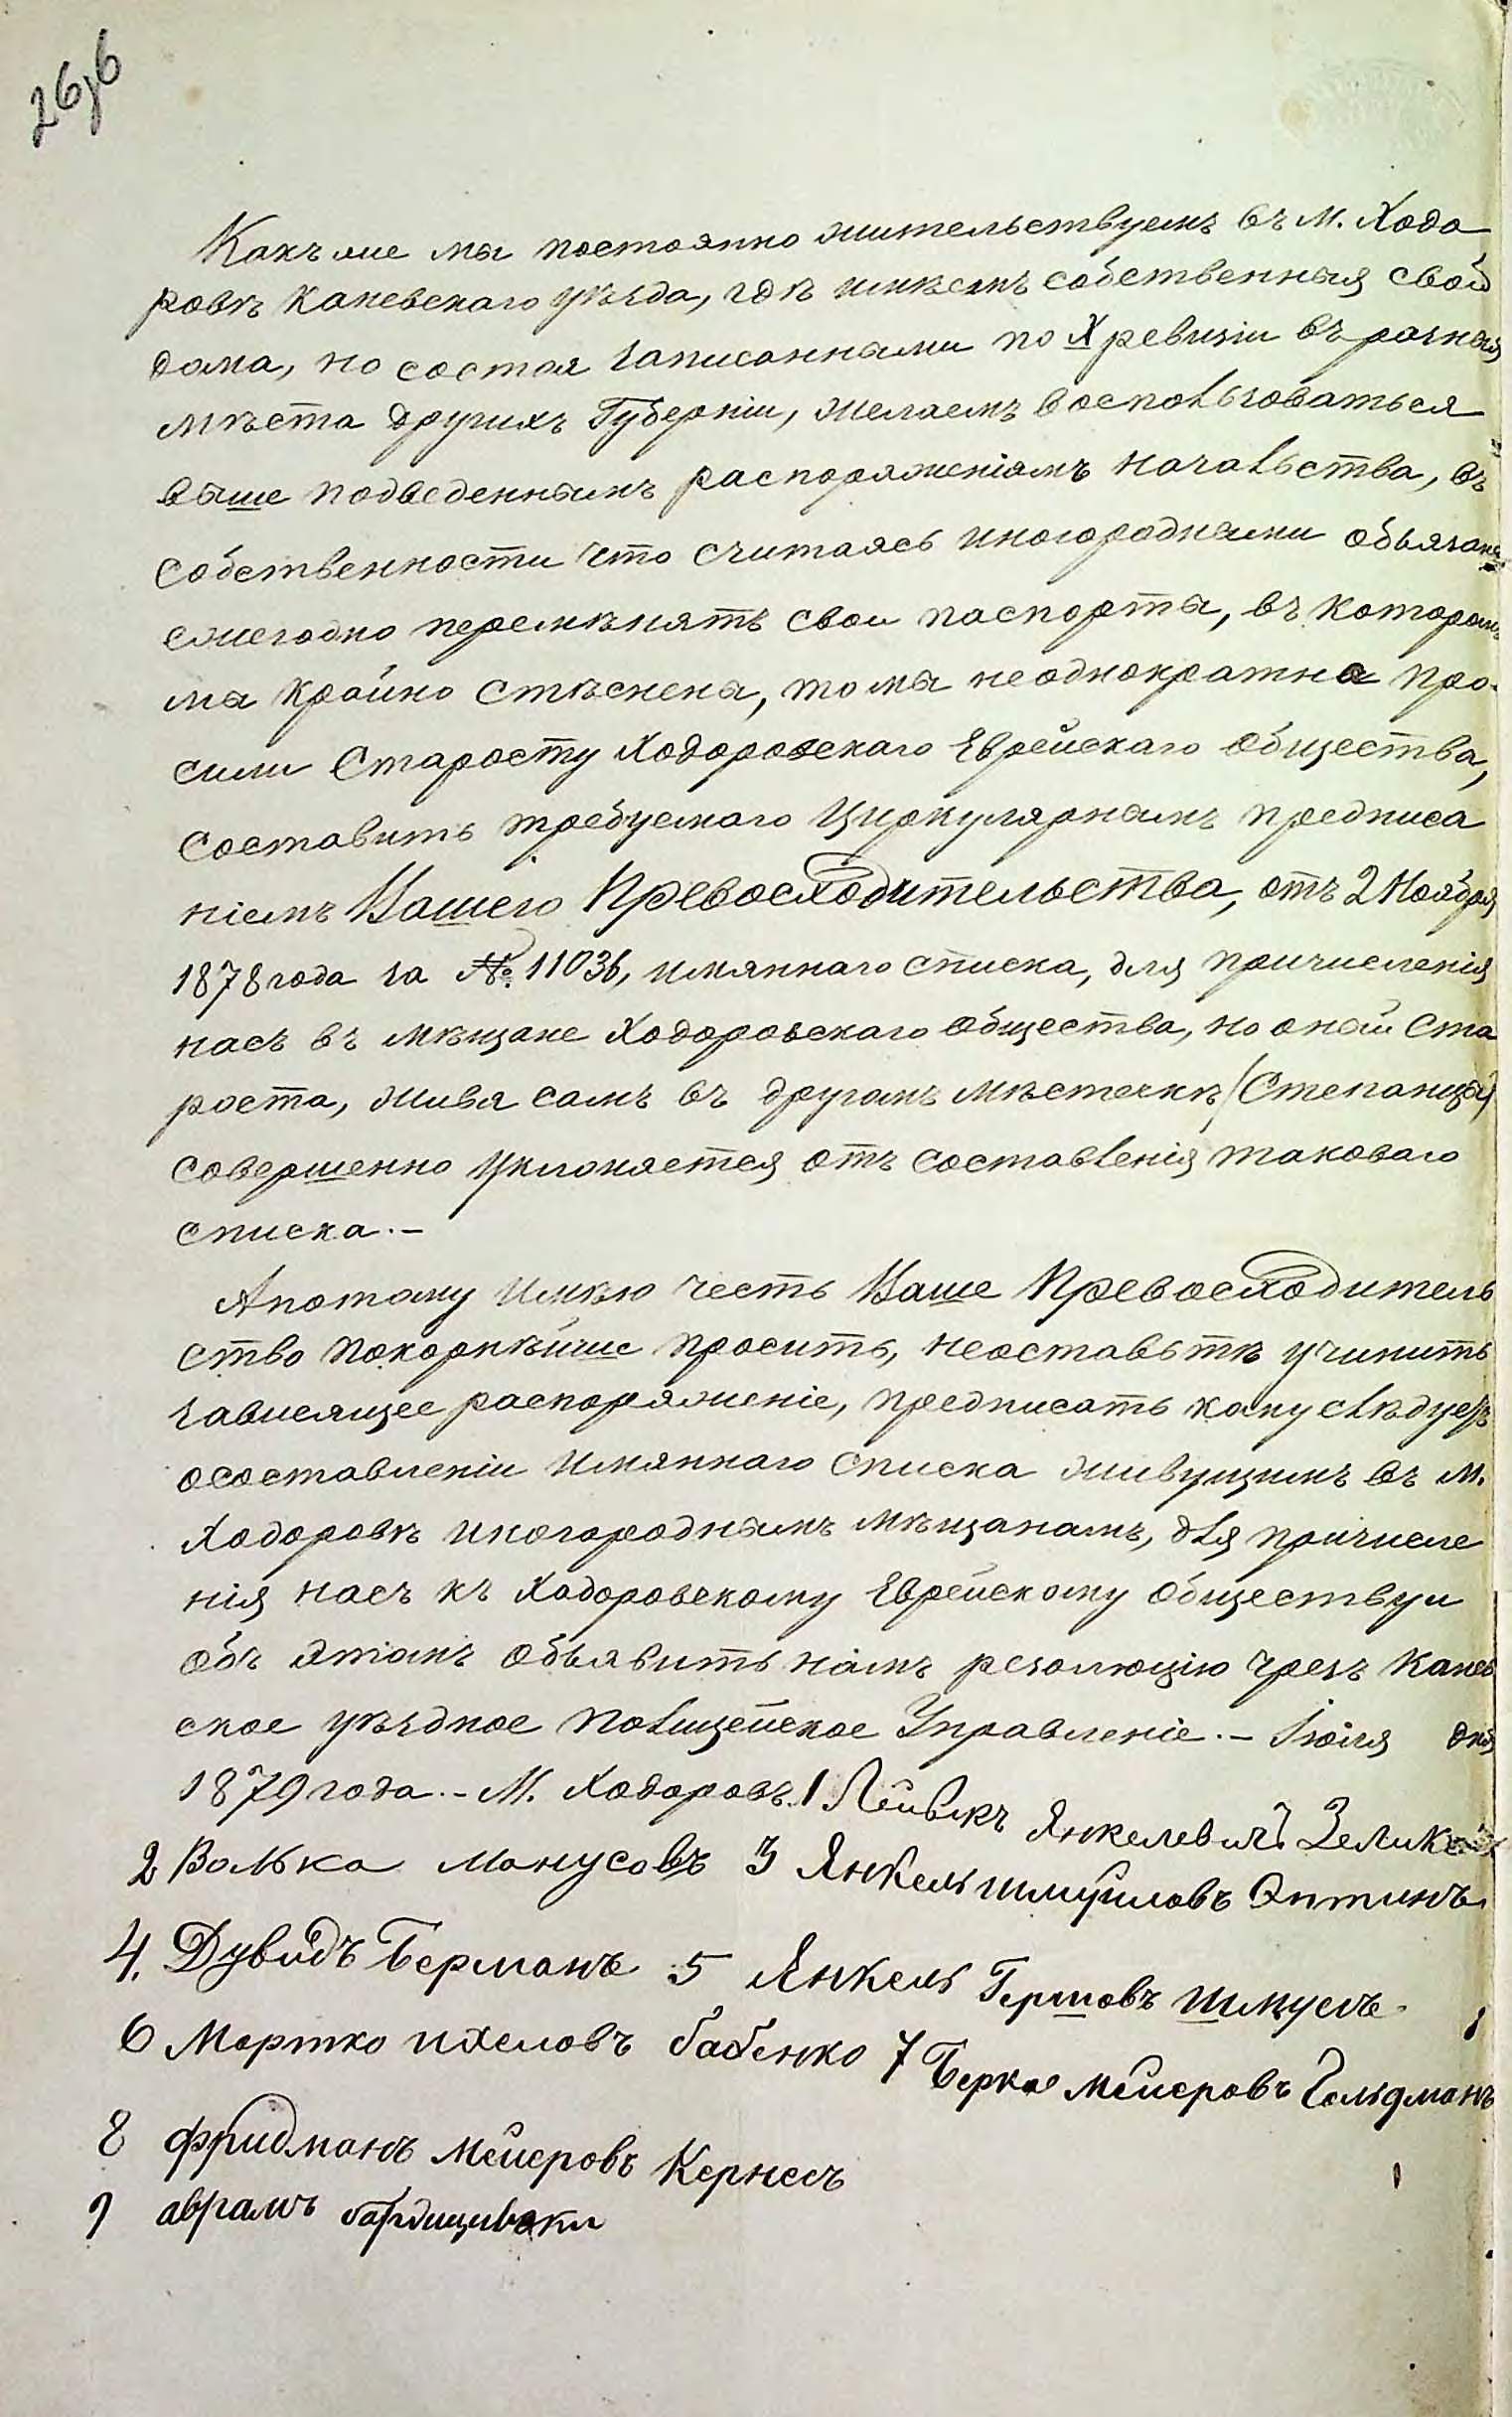 26,б
Какъ же мы постоянно жительствуемъ въ М. Ходо
ровѣ Каневскаго уѣзда, гдѣ имѣемъ собственныя свои
дома, но состоя записанными по X ревизіи въ разныя
мѣста другихъ Губерніи, желаемъ воспользоваться
выше подведеннымъ распоряженіямъ начальства, въ
собственности что считаясь иногородными обьязаны
ежегодно перемѣнять свои паспорты, въ которомъ
мы крайно стѣснены, то мы неоднократно про-
сили Старосту Ходоровскаго Еврейскаго Общества,
составить требуемаго Циркулярнымъ предписа
ніемъ Вашего Превосходительства, отъ 2 Ноября
1878 года за №. 11036, имяннаго списка, для причисленія
насъ въ мѣщане Ходоровскаго Общества, но оный Ста
роста, живя самъ въ другомъ мѣстечкѣ (Степанцы)
совершенно уклоняется отъ составленія таковаго
списка.-
Апотому имѣю честь Ваше Превосходитель
ство покорнѣйше просить, неоставьтѣ учинить
зависящее распоряженіе, предписать кому слѣдуетъ
осоставленіи имяннаго списка живущимъ въ М.
Ходоровѣ иногороднымъ мѣщанамъ, для причисле
нія насъ къ Ходоровскому Еврейскому Обществу и
объ этомъ объявить намъ резолюцію чрезъ Канев
ское уѣздное Полицейское Управленіе.- Іюля дня
1879 года.- М. Ходоровъ. 1 Лейвикъ Янкелевичъ
2 Волька Манусовъ 3 Янкель шмуиловъ Эптинъ
4. Дувидъ Берманъ 5 Янкель Гершовъ шмуель
6 Мортко ихелевъ бабенко 7 Берко мейеровъ Гельдманъ
8 фридманъ мейеровъ Кернесъ
9 аврамъ